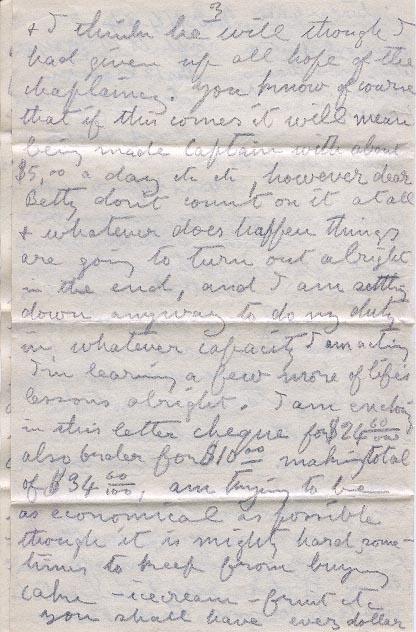 3
& I think he will though I
had given up all hope of the
chaplaincy. You know of course
that if this comes it will mean
being made Captain with about
$5.00 a day etc etc, however dear
Betty don't count on it at all
& whatever does happen things
are going to turn out alright
in the end, and I am settling
down anyway to do my duty
in whatever capacity I am acting
I'm learning a few more of life's
lessons alright. I am enclosing
in this letter cheque for $24 60/100
also order for $10.00 making total
of $34 60/100, am trying to be
as economical as possible
though it is might hard some-
times to keep from buying
cake - icecream - fruit etc
you shall have ever dollar